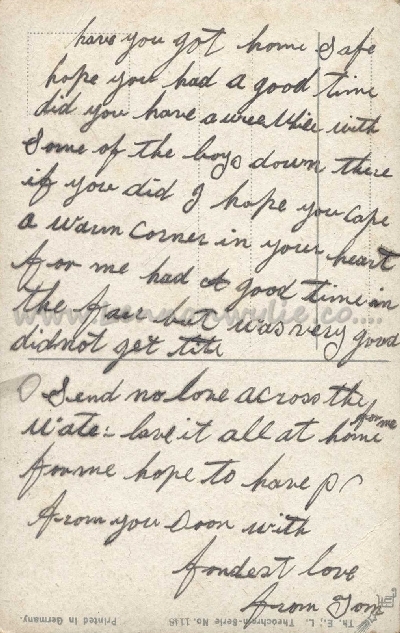 have you got home Safe
hope you had a good time
did you have a wee with
Some of the boys down there
if you did I hope you cape
a warm corner in your heart
for me had a good time in
the but was very good
did not get
O Send no love across the
for me
Wate- lave it all at home
for me hope to have
from you Soon with
fondest love
from Tom
Th. E., L. Theochrom-Serie No. 1148
Printed in Germany.